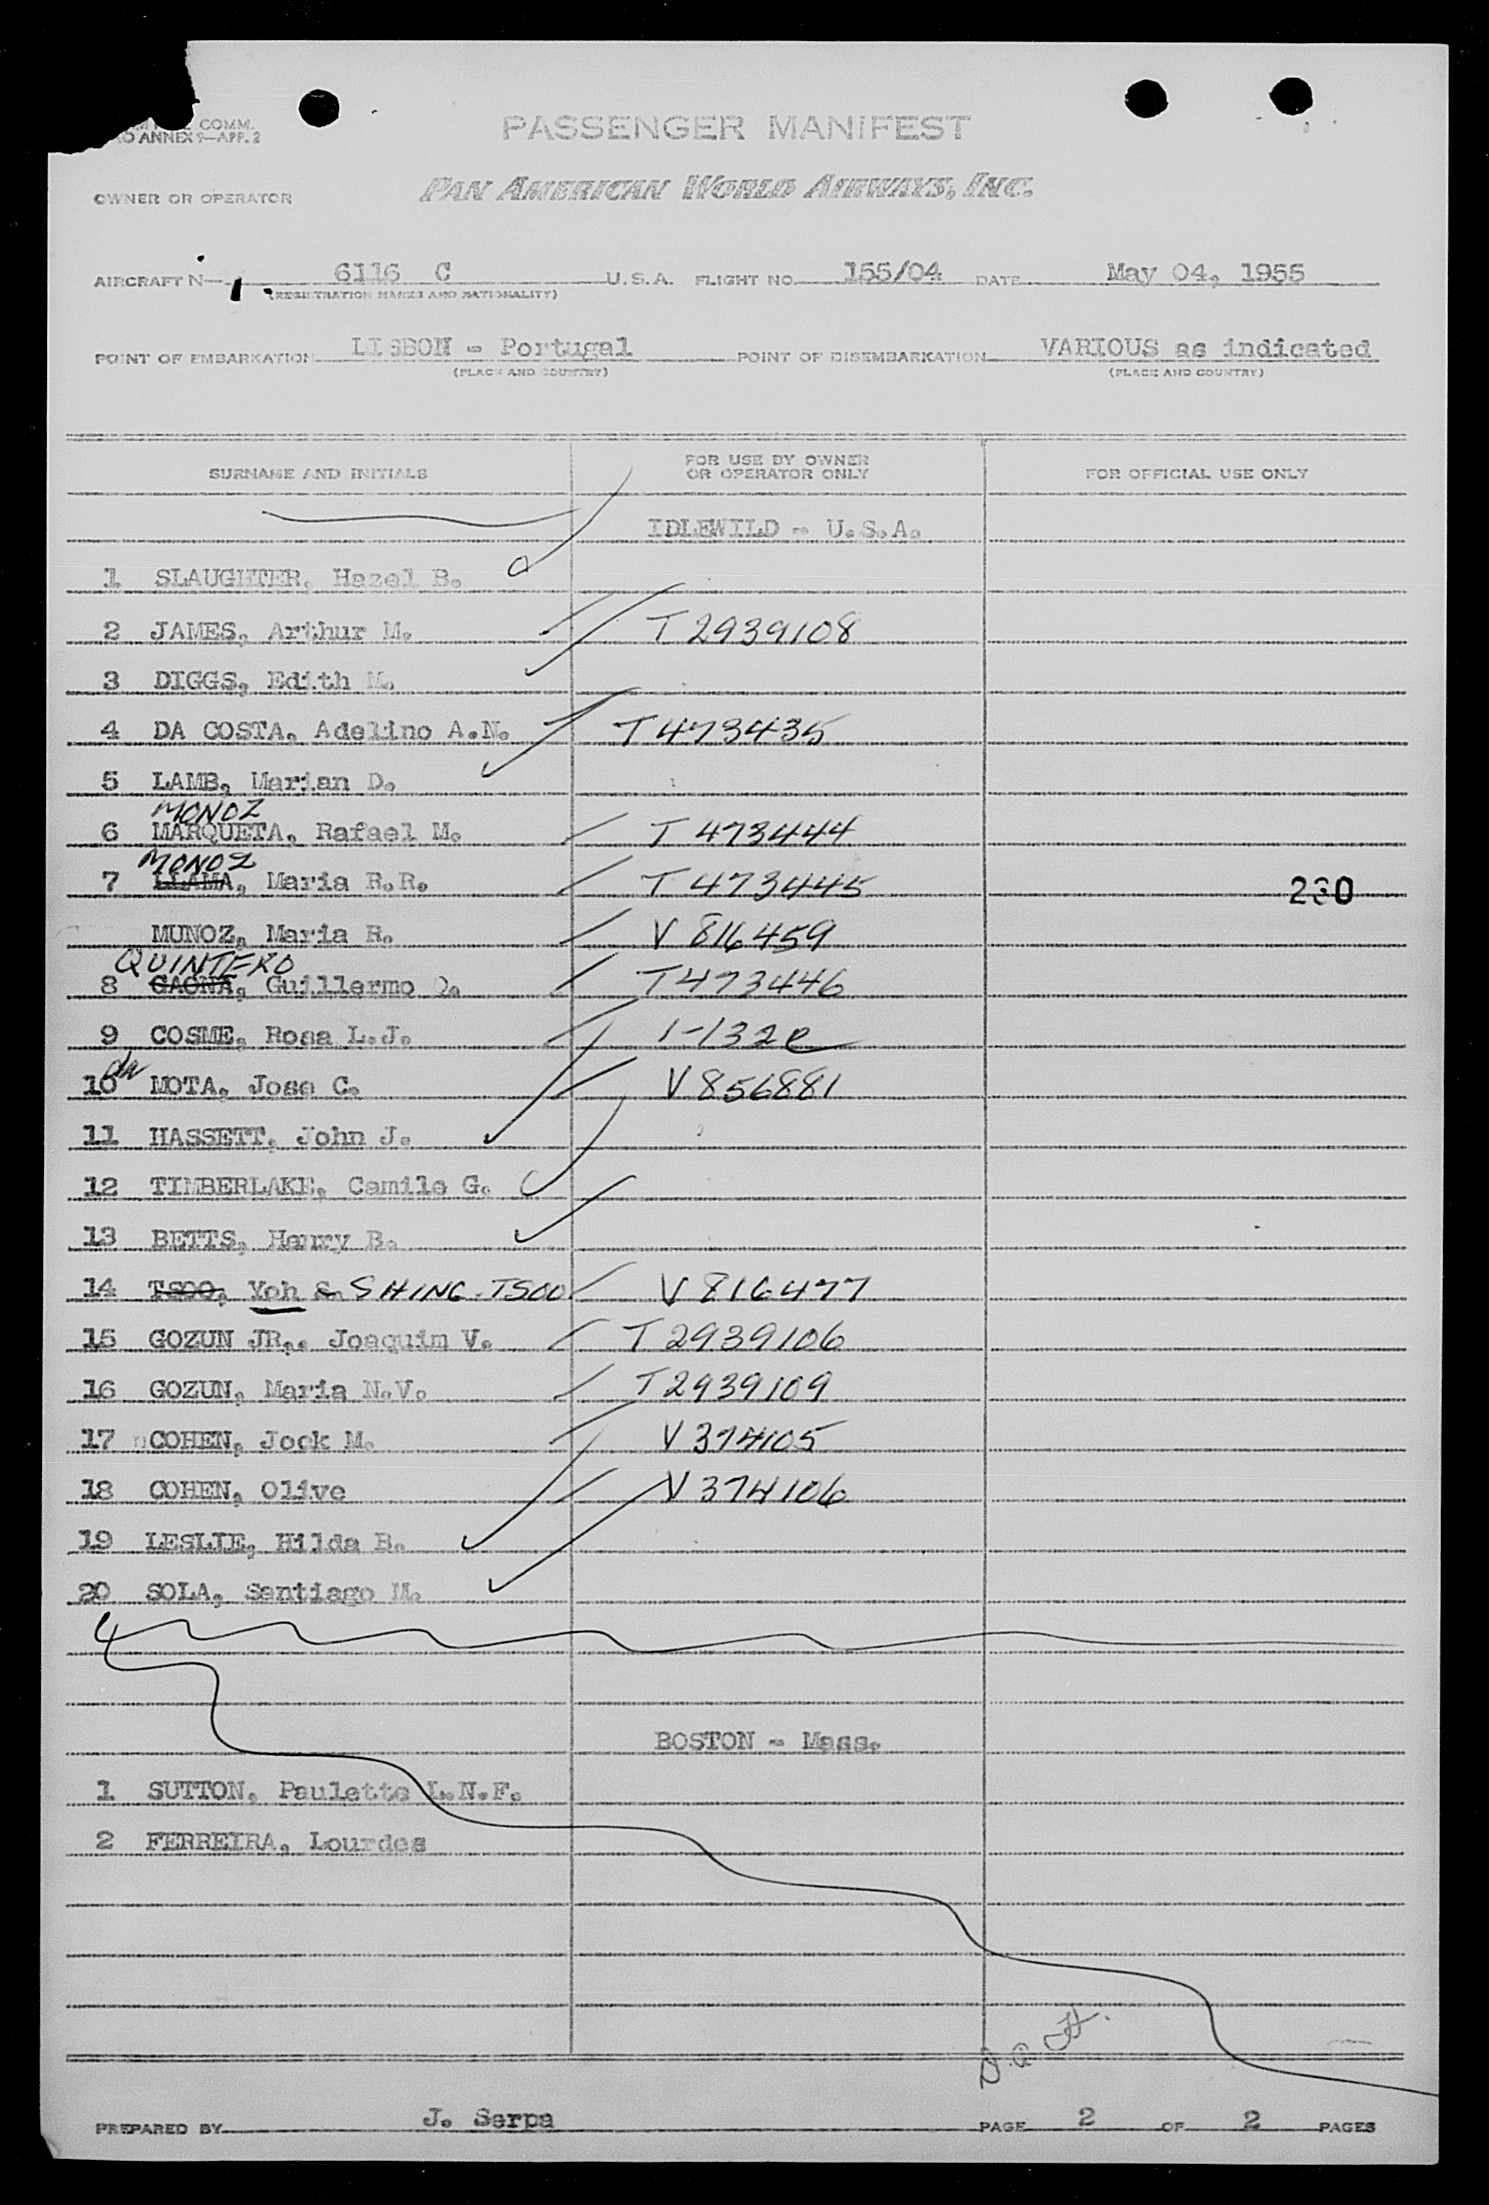 COMM.
ANNEX 9—APP. 2
PASSENGER MANIFEST
OWNER OR OPERATOR PAN AMERICAN WORLD AIRWAYS, INC.
AIRCRAFT N— 6116 C U.S.A. FLIGHT NO. 155/04 DATE May 04, 1955
(REGISTRATION MARKS AND NATIONALITY)
POINT OF EMBARKATION LISBON - Portugal POINT OF DISEMBARKATION VARIOUS as indicated
(PLACE AND COUNTRY) (PLACE AND COUNTRY)
SURNAME AND INITIALS FOR USE BY OWNER OR OPERATOR ONLY FOR OFFICIAL USE ONLY
IDLEWILD - U.S.A.
1 SLAUGHTER, Hazel B.
2 JAMES, Arthur M. T2939108
3 DIGGS, Edith M.
4 DA COSTA, Adelino A.N. T473435
5 LAMB, Marian D.
MONOZ
6 MARQUETA, Rafael M. T473444
MONOZ
7 LLAMA, Maria R.R. T473445 230
MUNOZ, Maria R. V816459
QUINTERO
8 GAONA, Guillermo Q. T473446
9 COSME, Rosa L.J. 1-132e
da
10 MOTA, Jose C. V856881
11 HASSETT, John J.
12 TIMBERLAKE, Camile G.
13 BETTS, Henry B.
14 TSOO, Yoh S. SHING-TSOO V816477
15 GOZUN JR,. Joaquim V. T2939106
16 GOZUN, Maria N.V. T2939109
17 COHEN, Jock M. V374105
18 COHEN, Olive V374106
19 LESLIE, Hilda B.
20 SOLA, Santiago M.
BOSTON - Mass.
1 SUTTON, Paulette L.N.F.
2 FERREIRA, Lourdes
PREPARED BY J. Serpa PAGE 2 OF 2 PAGES